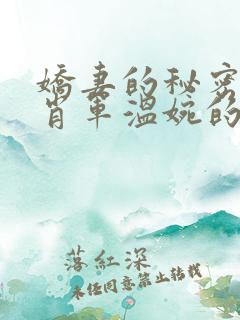 嬌妻的秘密
肖軍溫婉的
落紅深
未经同意禁止转载